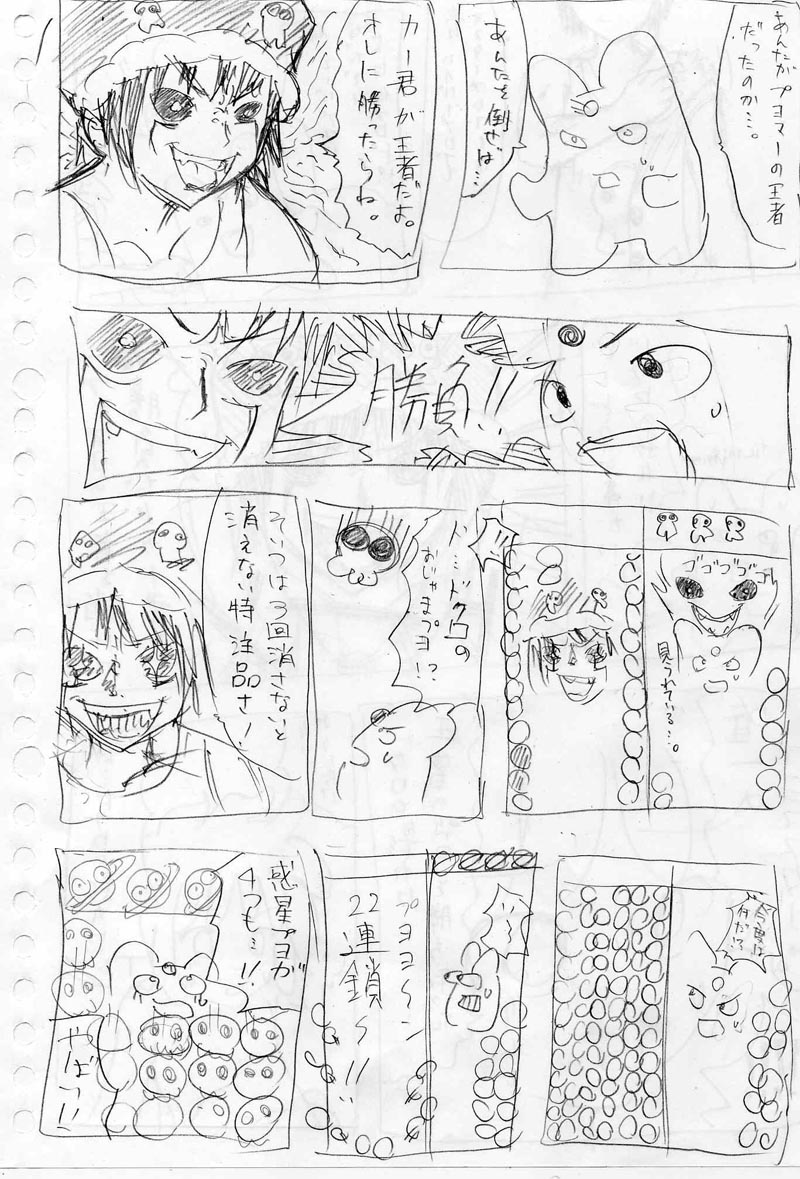 あんたがプヨマーの王者
だったのか…。
あんたを倒せば…
カー君が王者だよ。
オレに勝ったらね。
勝負!!
ゴゴゴゴゴ
見られている…。
ド…ドクロの
おじゃまプヨ!?
そいつは3回消さないと
消えない特注品さ!
今度は
何だ!?
プヨヨ〜ン
22連鎖〜!!
惑星プヨが
4つも…!!
やばっ!!